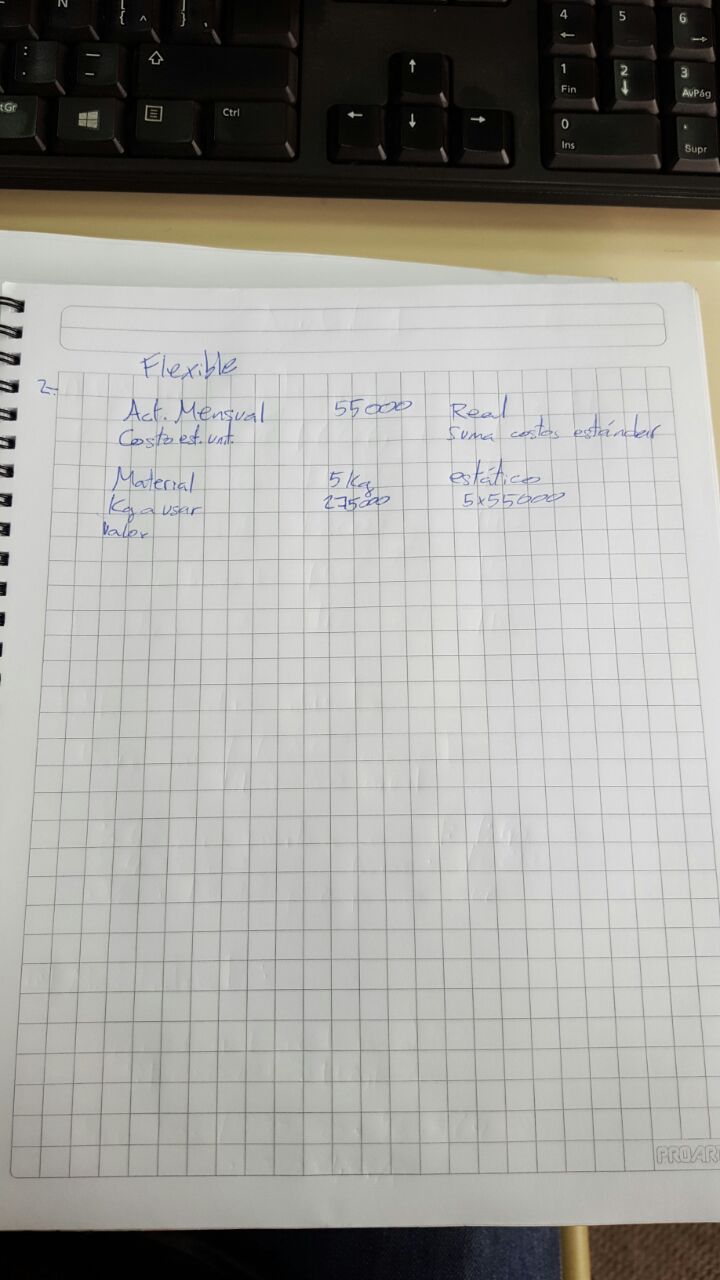 N { [ ^ } ] ` 4 ← 5 6 →
: . _ - ⇧ ↑ 1 Fin 2 ↓ 3 AvPág
tGr Ctrl ← ↓ → 0 Ins . Supr
Flexible
2.
Act. Mensual 55000 Real
Costo est. unt. Suma costos estándar
Material 5 Kg estático
Kg a usar 275000 5x55000
Valor
PROAR